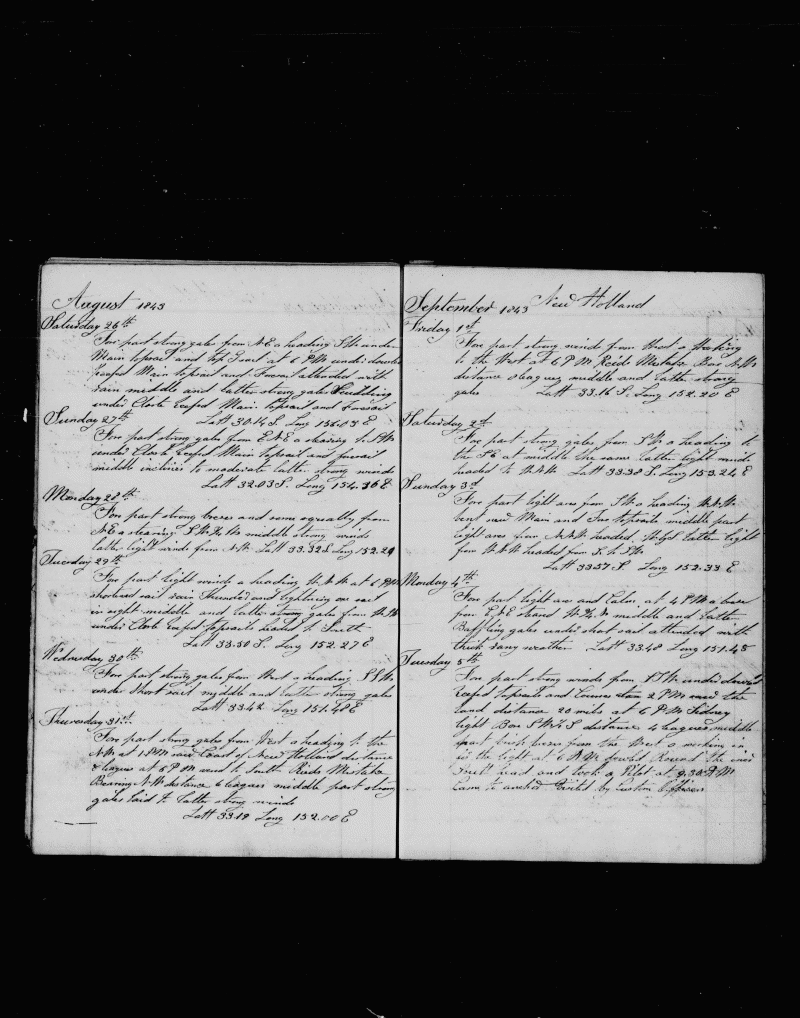 August 1843
Saturday 26th
Fore part strong gales from N.E a heading S.W. under
Main topsail and top Sail at 6 P.M. under double
reefed Main topsail and Foresail attended with
rain middle and latter strong gales Scudding
under Close Reefed Main topsail and Foresail
Sunday 27th Latt 30.14 S. Long 156.03 E
Fore part strong gales from E N E a stearing S.S.W
under Close Reefed Main topsail and foresail
middle inclines to moderate latter strong winds
Latt 32.03 S. Long 154.36 E
Monday 28th
Fore part strong breses and some squally from
N.E a stearing S.W. middle strong winds
latter light winds from N.W. Latt 33.32 S Long 152.29
Tuesday 29th
Fore part light winds a heading W.N.W at 6 P.M
shortned sail rain Thunder and lightning one sail
in sight middle and latter strong gales from W.S.W
under Close Reefed topsails headed to South
Latt 33.50 S. Long 152.27 E
Wednesday 30th
Fore part strong gales from West a heading S.S.W
under Short sail middle and latter strong gales
Latt 33.42 Long 151.48 E
Thuresday 31st
Fore part strong gales from West a heading to the
N.W. at 1 P.M saw Coast of New Holland distance
8 leagues at 6 P.M. went to South Reids Mistake
Bearing N.W distance 6 leagues middle part strong
gales laid to latter strong winds
Latt 33.19 Long 152.00 E
September 1843 New Holland
Friday 1st
Fore part strong winds from West a Working
to the West at 6 P M Reids Mistake Bore N.W
distance 8 leagues middle and latter strong
gales Latt 33.16 S. Long 152.20 E
Saturday 2d
Fore part strong gales from S.W. a heading to
the S.E at middle the same latter light winds
headed to W.N.W. Latt 33.38 S. Long 153.24 E
Sunday 3d
Fore part light ares from S.W. a heading W.N.W.
bent new Main and Fore topsails middle part
light ares from N.N.W headed latter light
from W.N.W headed from S. to S.W.
Latt 33.57 S Long 152.33 E
Monday 4th
Fore part light ares and Calm, at 4 P.M a brese
from E.N.E steared W. middle and latter
Baffling gales under short sail attended with
thick rany weather Latt 33.40 Long 151.45
Tuesday 5th
Fore part strong winds from S.S.W. under close
Reefed topsail and Courses at 2 P.M saw the
land distance 20 mils at 6 P.M Sidney
light Bore S.W. S distance 4 leagues middle
part brisk breses from the West a working in
to the light at 6 A.M fetched Round the
South head and took a Pilot at 9.30 A M
Came to anchor Visited by Custom Officers